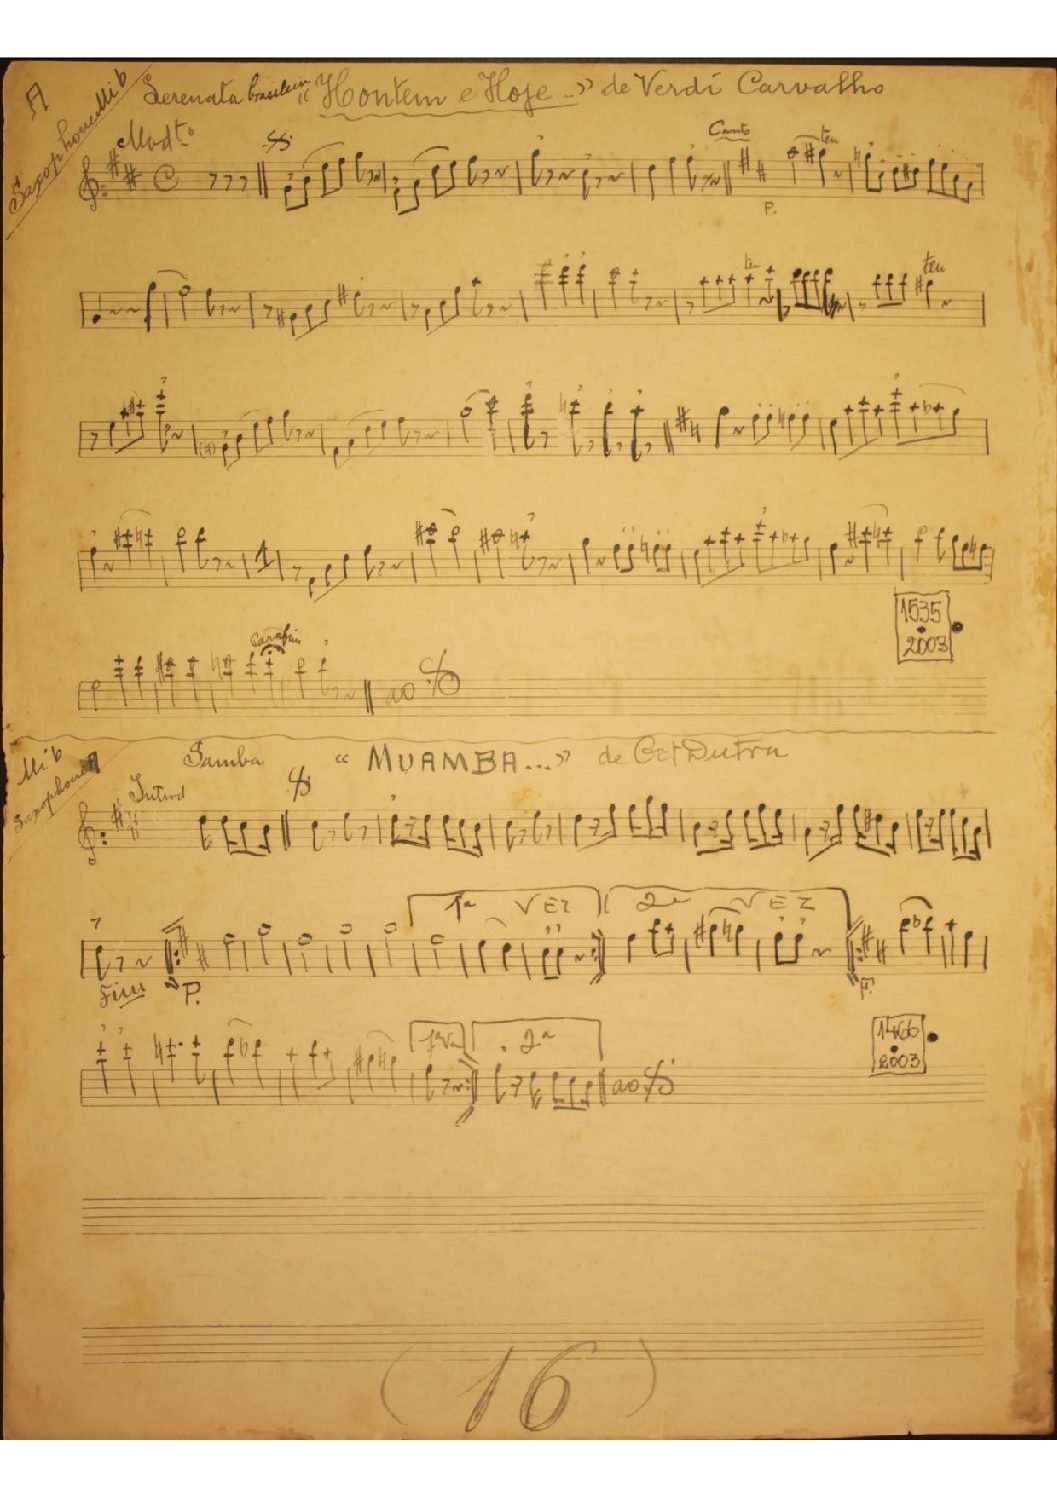 A
Saxophone Mib
Serenata brasileira "Hontem e Hoje..." de Verdi Carvalho
Modto
Canto
ten
P.
ten
ten
1
para fim
ao
1535
2003
Mib
Saxophone A
Samba "MUAMBA..." de Dutra
Introd
1a VEZ 2a VEZ
Fim P. F.
1a Vez 2a
ao
1466
2003
(16)